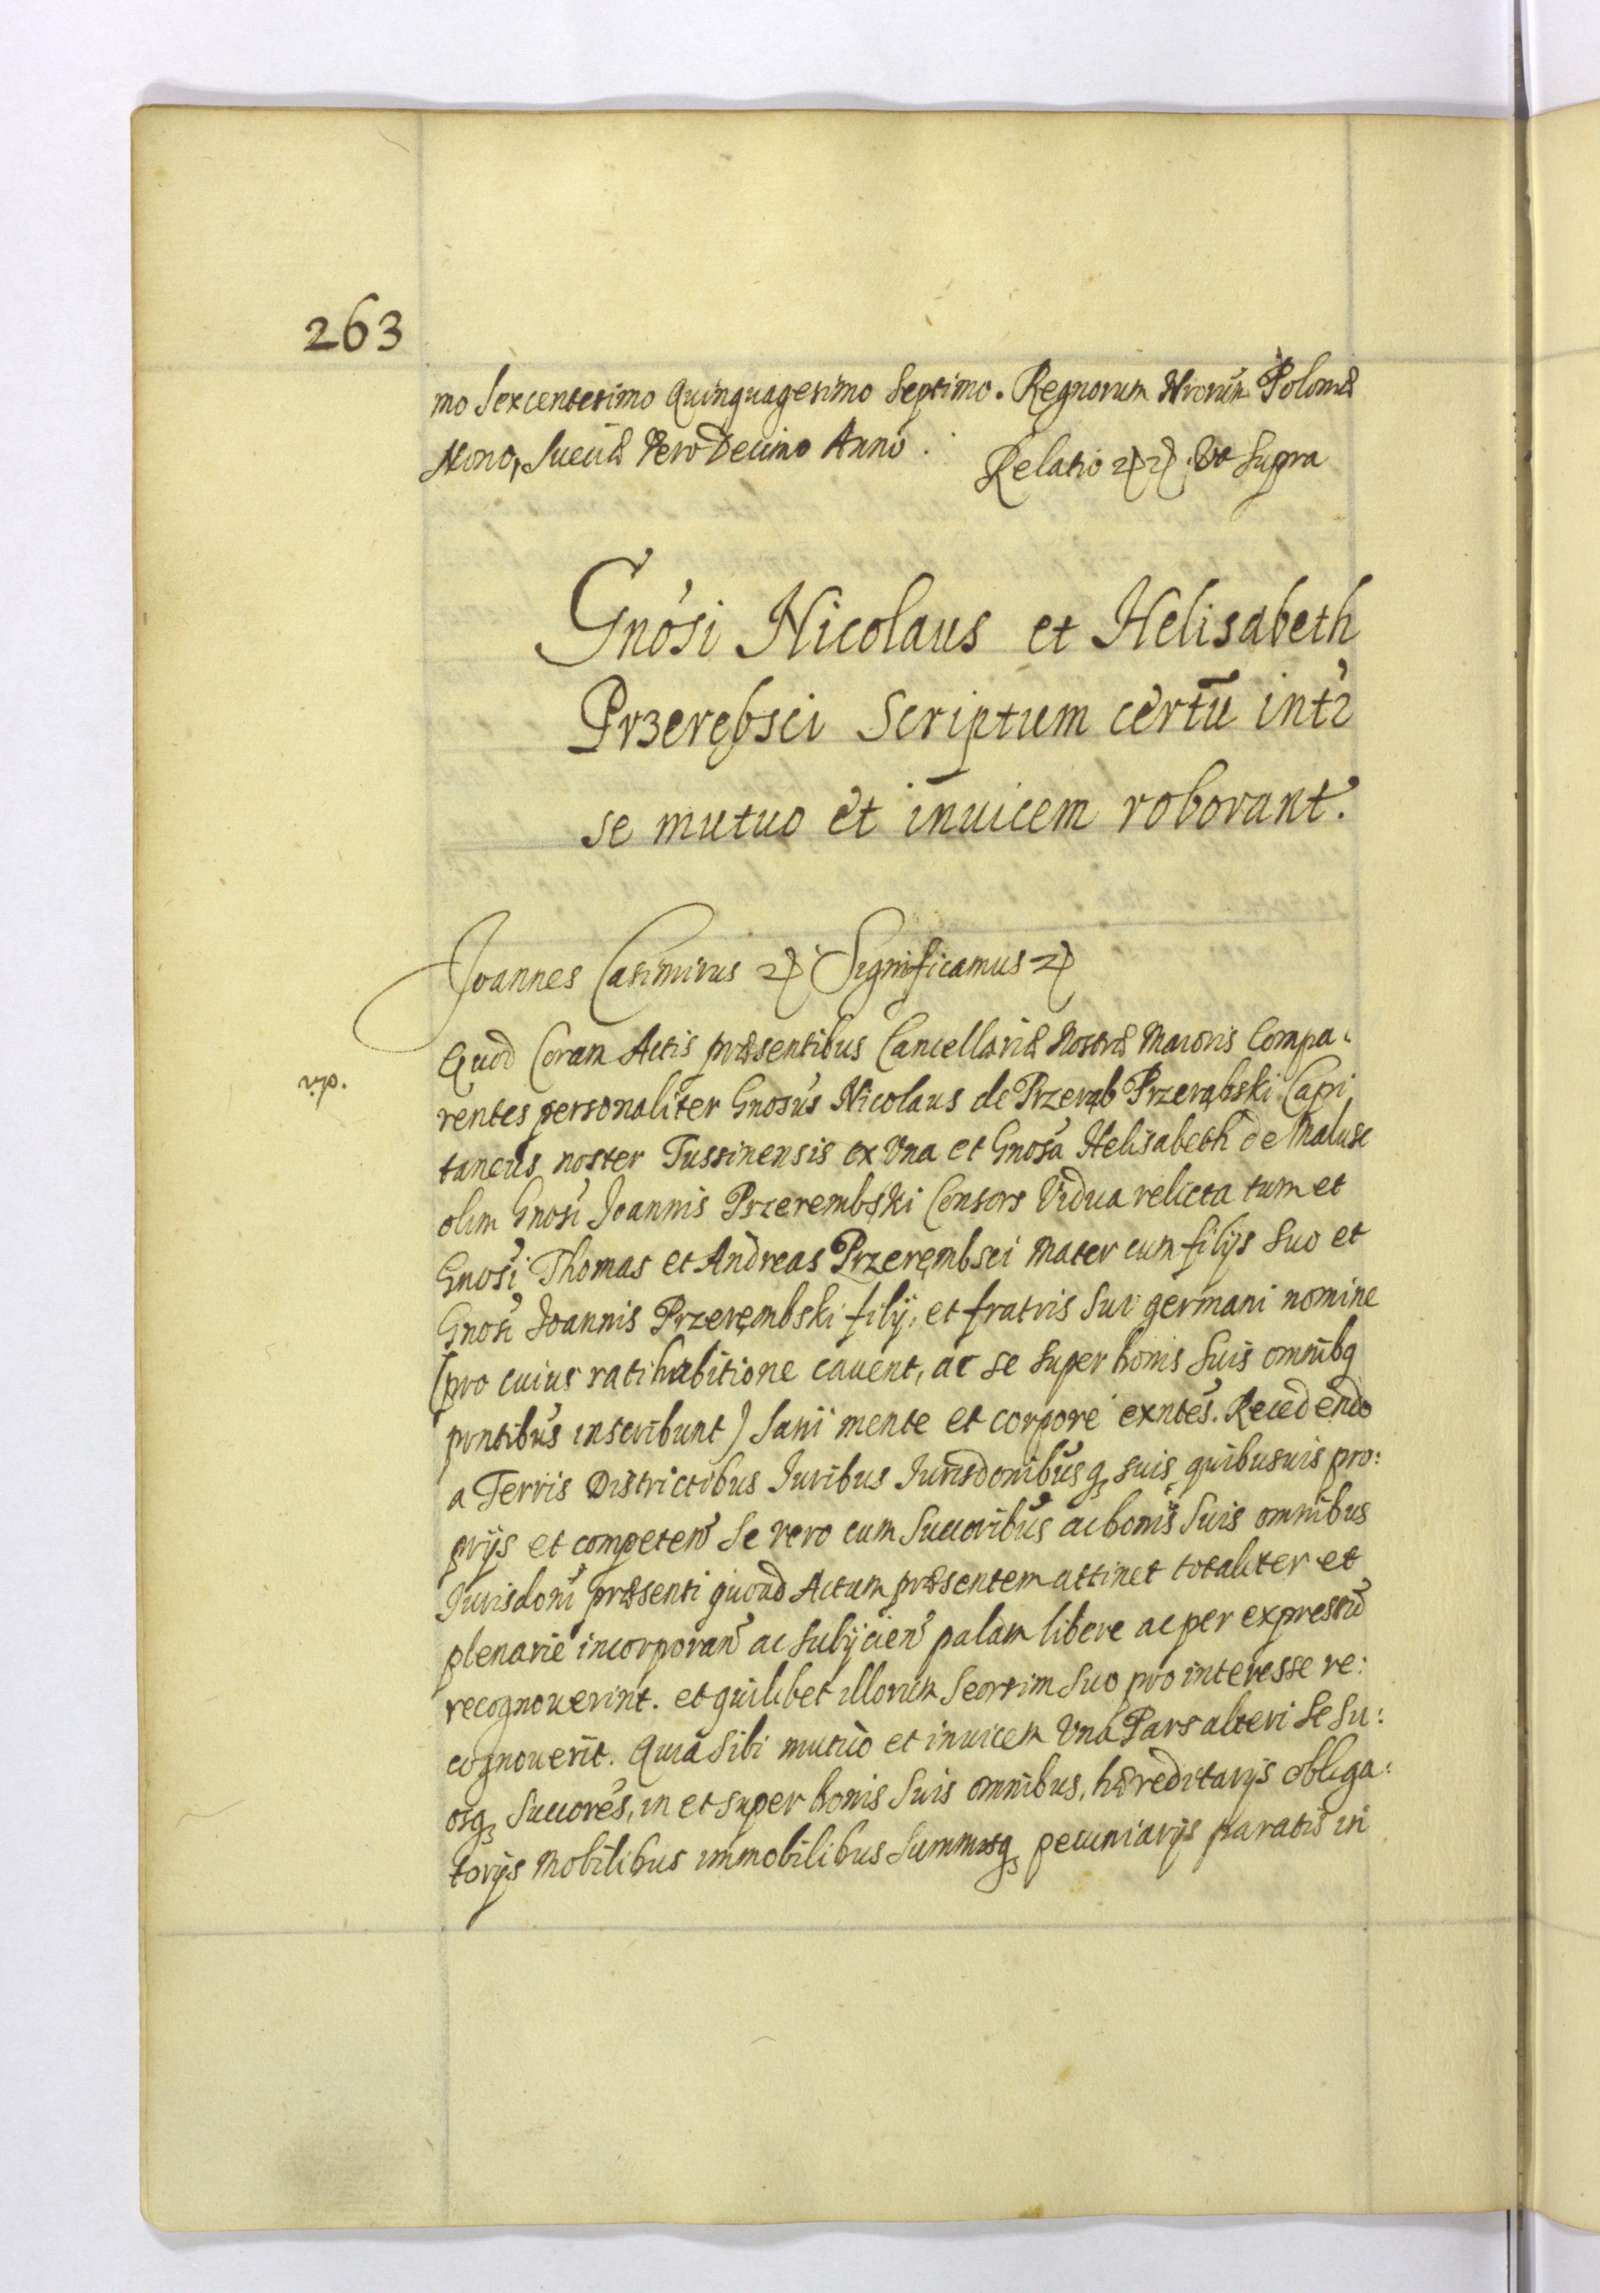 263
mo Sexcentesimo Quinquagesimo Septimo. Regnorum Nrorum Poloniæ
Nono, Sueciæ Vero Decimo Anno.
Relatio etc etc Ut Supra
Gnosi Nicolaus et Helisabeth
Przerębsci Scriptum certū int̄
se mutuo et inuicem roborant.
Joannes Casimirus etc Significamus etc
Quod Coram Actis præsentibus Cancellariæ Nostræ Maioris Compa:
rentes personaliter Gnosus Nicolaus de Przerąb Przerąbski Capi
taneus noster Tussinensis ex Vna et Gnosa Helisabeth de Malusc
olim Gnosi Joannis Przerembski Consors Vidua relicta tum et
Gnosi Thomas et Andreas Przerembsci Mater cum filijs Suo et
Gnosi Joannis Przerembski filij, et fratris Sui germani nomine
(pro cuius ratihabitione cauent, ac se super bonis Suis omnibq
pnntibus inscribunt) Sani mente et corpore exntes. Recedendo
a Terris Districtibus Juribus Jurisdonibusq suis quibusuis pro:
prijs et competen Se vero cum Succoribus ac bonis Suis omnibus
Jurisdoni præsenti quoad Actum præsentem attinet totaliter et
plenarie incorporan ac Subijcien palam libere ac per expressū
recognouerint. et quilibet illorum Seorsim Suo pro interesse re:
cognouerit. Quia Sibi mutuo et inuicem Vna Pars alteri Se Su:
osq Succores, in et super bonis Suis omnibus, hæreditarijs obliga:
torijs Mobilibus immobilibus Summisq pecuniarijs paratis in